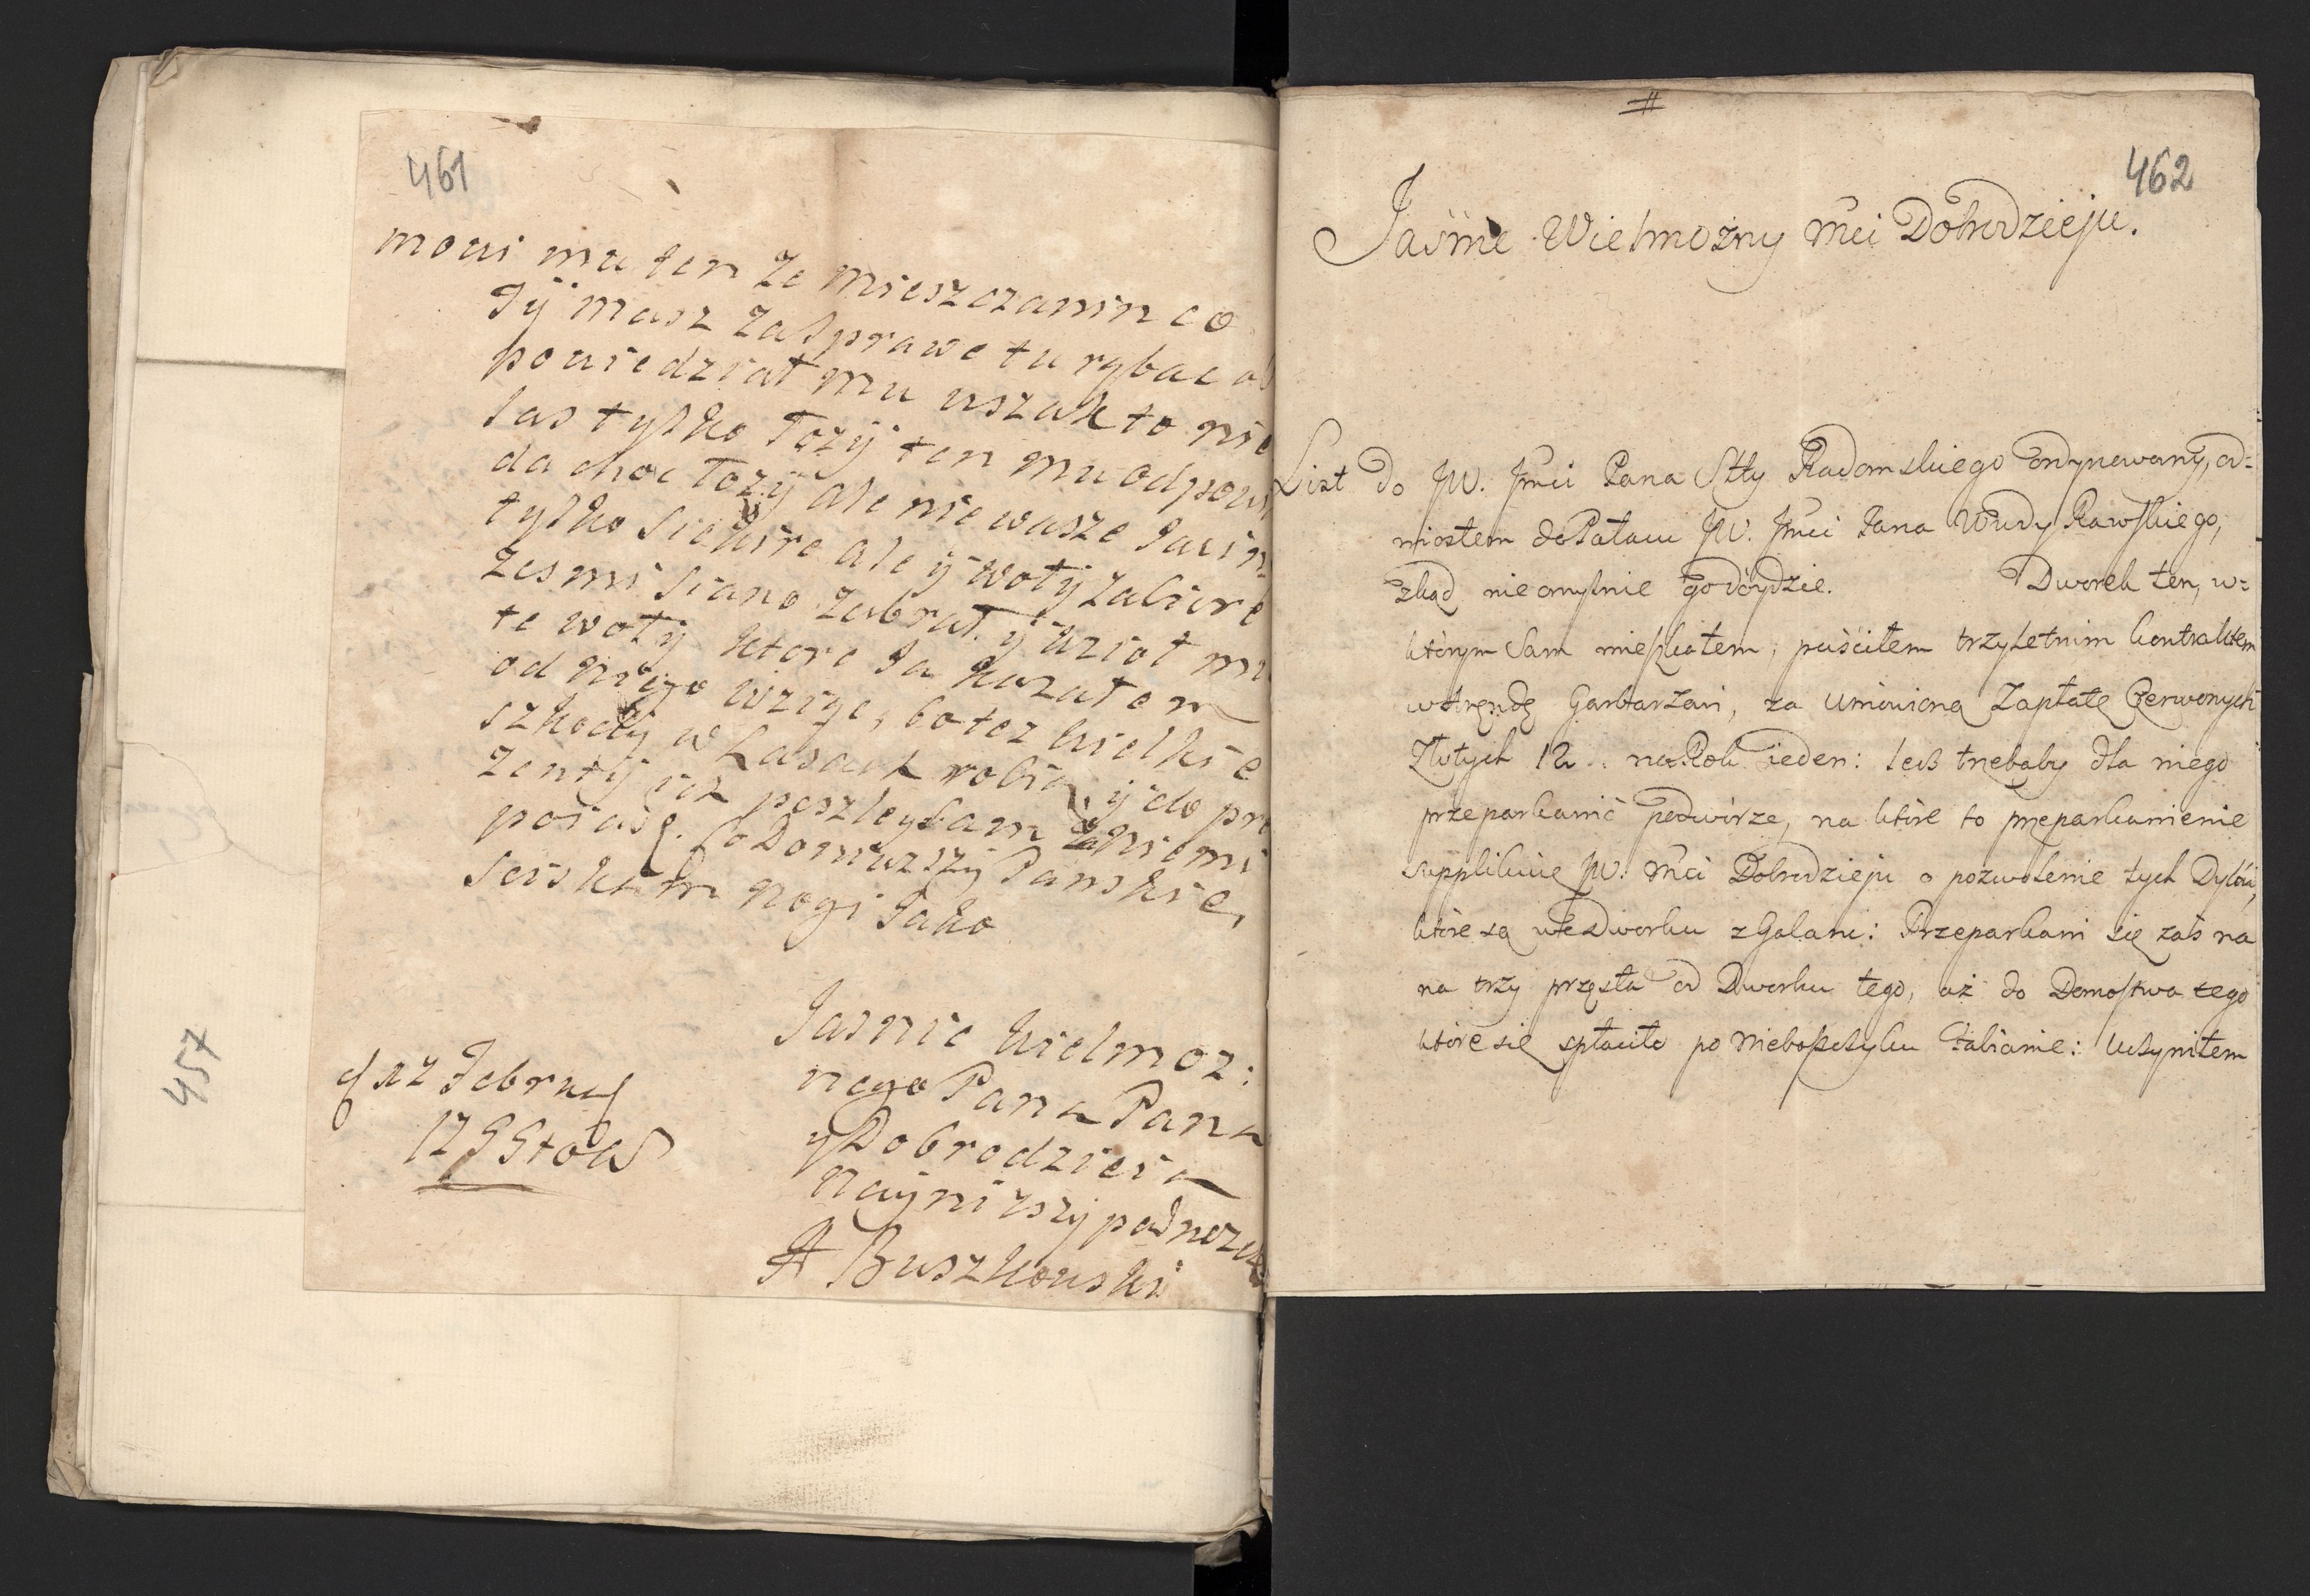 461
moui mu ten ze mieszczanin co
Jÿ masz za sprawe tu rybac
pouiedziat mu uszak to nie
las tylko Tozÿ ten mu odpoui
da choc Tozÿ ale nie wasze Ja
tylko siekire ale ÿ wotÿ zabiore
zes mi siano zabrat ÿ uziot mi
te wotÿ ktore Ja kazatem
od niego wziąc, bo tez uielkie
szkodÿ w Lasach robią ÿ do pre
zentÿ ich poszleÿbam
Panskie,
sciskam nogi Jako
Jasnie Uielmoz:
nego Pana Pana
y Dobrodzieia
naÿnizszÿ podnozek
A Buszkouski
d 12 Febru
457
#
462
Jaśnie Wielmożny Mci Dobrodzieju.
List do JW. Jmci Pana Stty Radomskiego ordynowany, od=
niostem do Pałacu JW. Jmci Pana Wdy Rawskiego,
zkąd nieomylnie go dóydzie. Dworek ten, w=
którym sam mieszkałem, puściłem trzyletnim kontraktem
w Arędę Garbarzowi, za umówioną Zapłatę Czerwonych
Złotych 12. na Rok ieden: lecz trzebaby dla niego
przeparkanić podwórze, na które to przeparkanienie
supplikuię JW. Mci Dobrodzieju o pozwolenie tych Dylów,
które są w te Dworku z Galaru: Przeparkani się zaś na
na trzy przęsła od Dworku tego, aż do Domostwa tego
które się spłaciło po Nieboszczyku Fabianie: Uczyniłem